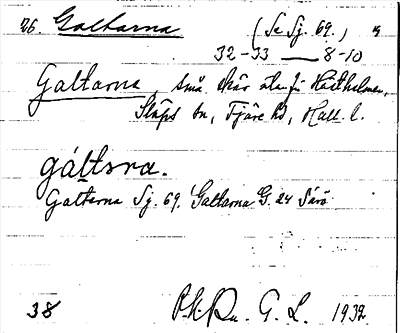 26. Galtarna (Se Sj. 69.)
32-33 — 8-10
Galtarna, små skär utanför Hästholmen,
Släps sn, Fjäre hd, Hall. l.
gáltsra.
Galtarna Sj. 69. Galtarna G. 24 Särö
38 G. L. 1932